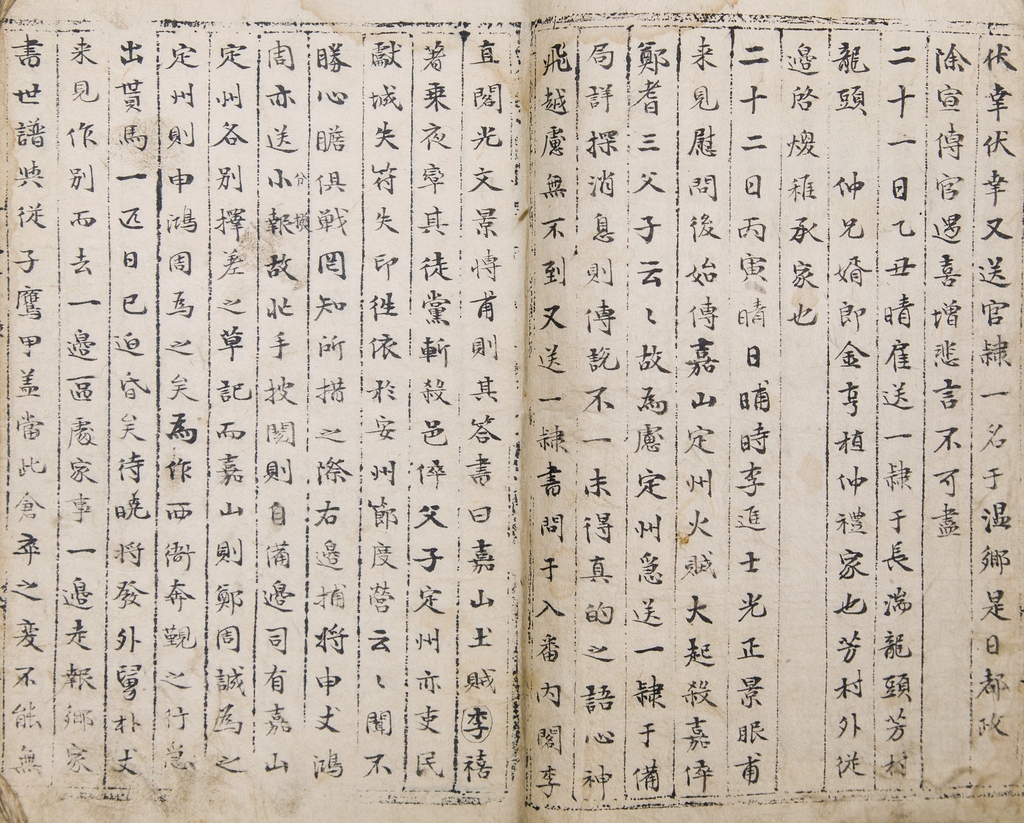 伏幸伏幸又送官隷一名于温鄉是日都政
除宣傳官遇喜增悲言不可盡
二十一日乙丑晴雇送一隷于長湍龍頭芳村
龍頭 仲兄婿郎金亨植仲禮家也芳村外從
邉啓㷞稚承家也
二十二日丙寅晴日晡時李進士光正景眼甫
来見慰問後始傳嘉山定州火賊大起殺嘉倅
鄭耆三父子云〻故為慮定州急送一隷于備
局詳探消息則傳説不一未得真的之語心神
飛越慮無不到又送一隷書問于入番内閣李
直閣光文景博甫則其答書曰嘉山土賊李禧
著乗夜率其徒黨斬殺邑倅父子定州亦吏民
獻城失符失印徃依於安州節度營云〻聞不
勝心膽俱戰罔知所措之際右邉捕將申丈鴻
周亦送小報分撥故忙手披閱則自備邉司有嘉山
定州各别擇差之草記而嘉山則鄭周誠為之
定州則申鴻周為之矣為作西衙奔覲之行急
出貰馬一匹日已迫昏矣待曉將發外舅朴丈
来見作别而去一邉區處家事一邉走報鄉家
書世譜與従子鷹甲盖當此倉卒之変不能無